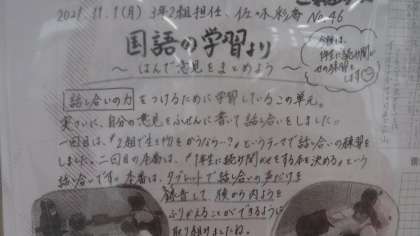 2021.11.1(月) 3年2組担任、佐々木彩香 No.46
国語の学習より
〜 はんで意見をまとめよう 〜
今回は、
1年生に読み聞か
せの練習を
します
話し合いの力をつけるために学習しているこの単元。
実さいに、自分の意見をふせんに書いて話し合いをしました。
一回目は、『2組で生き物をかうなら…?』というテーマで話し合いの練習を
しました。二回目の本番は、『1年生に読み聞かせをする本を決める』という
話し合いです。本番は、タブレットで話し合いの声だけを
録音して、後から内ようを
ふりかえることができるように
取り組みましたね。